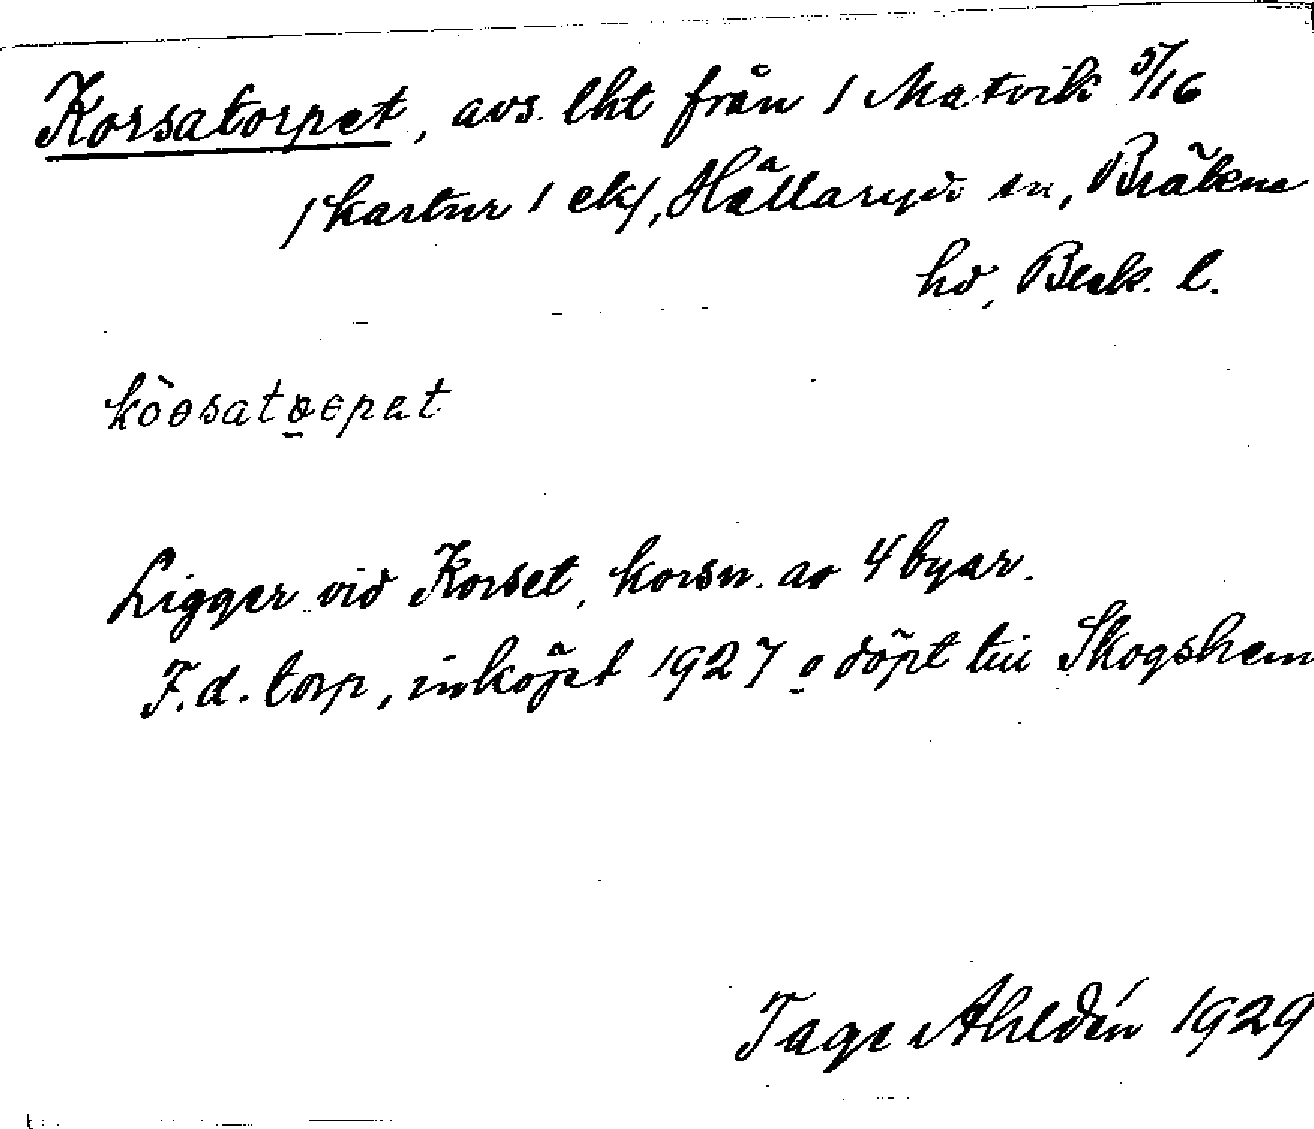 Korsatorpet, avs. lht från 1 Matvik 5/16
/kartnr 1 ek/, Hällaryds sn, Bräkne
hd, Blek. l.
Ligger vid Korset, korsn. av 4 byar.
F.d. torp, inköpt 1927 o döpt till Skogshem
Tage Ahldén 1929